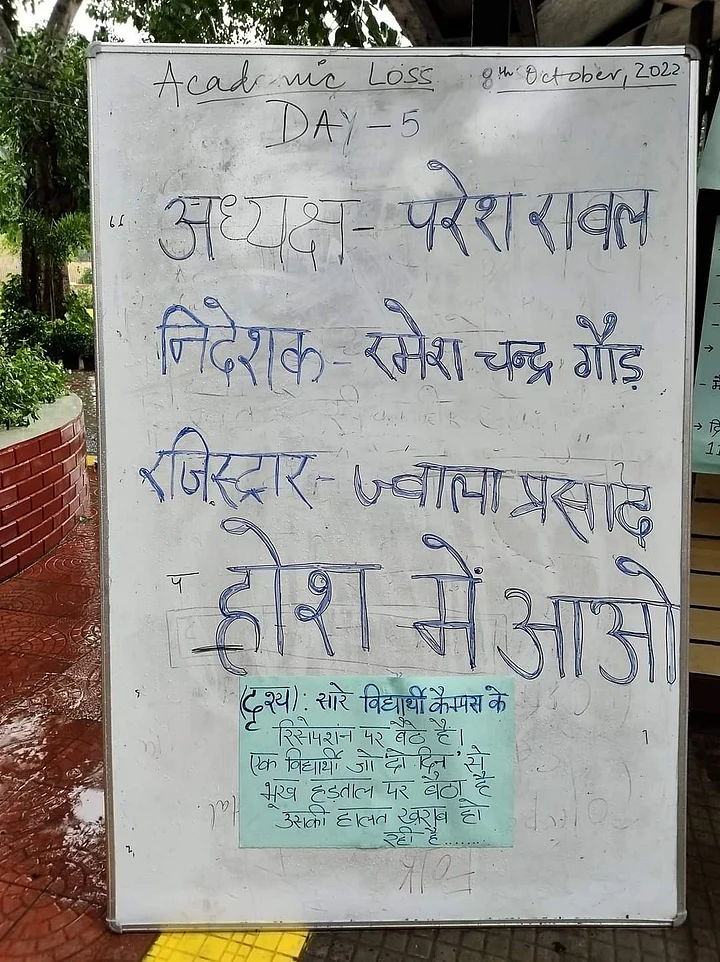 Academic Loss 8th October, 2022
DAY - 5
अध्यक्ष - परेश रावल
निदेशक - रमेश चन्द्र गौड़
रजिस्ट्रार - ज्वाला प्रसाद
होश में आओ
(दृश्य) : सारे विद्यार्थी कैम्पस के
रिसेपशन पर बैठे हैं।
एक विद्यार्थी जो दो दिन से
भूख हड़ताल पर बैठा है
उसकी हालत खराब हो
रही है.......